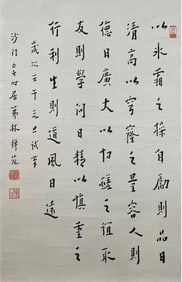 以冰霜之操自勵則品日
清高以穹窿之量容人則
德日廣大以切磋之誼取
友則學問日精以慎重之
行利生則道風日遠
歲次壬午元旦試筆
沙門居林禪苑